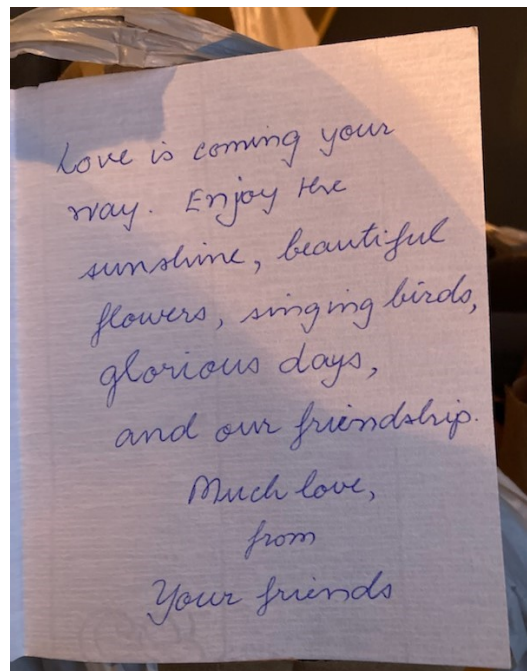 Love is coming your
way. Enjoy the
sunshine, beautiful
flowers, singing birds,
glorious days,
and our friendship.
Much love,
from
Your friends